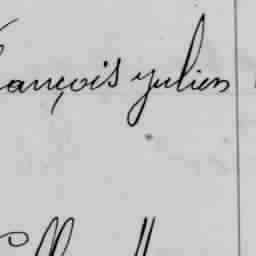 ançois julien